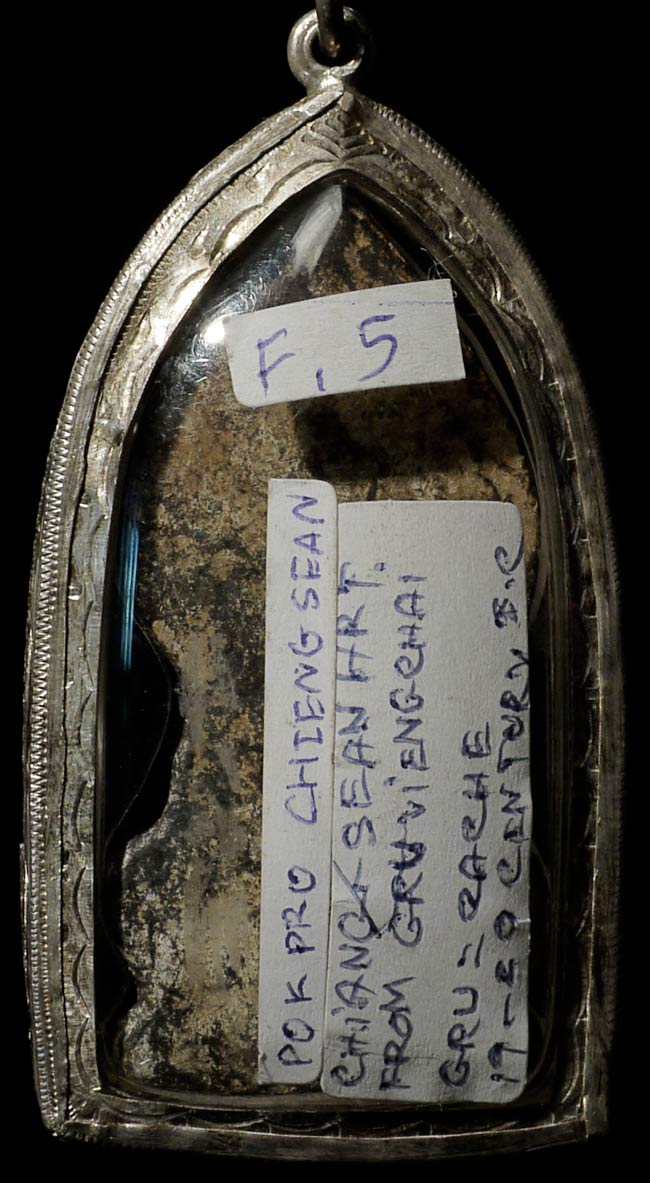 F. 5
POK PRO CHIENGSEAN
CHIANG SEAN HRT.
FROM GRU VIENGCHAI
GRU = CACHE
19-20 CENTURY B.C